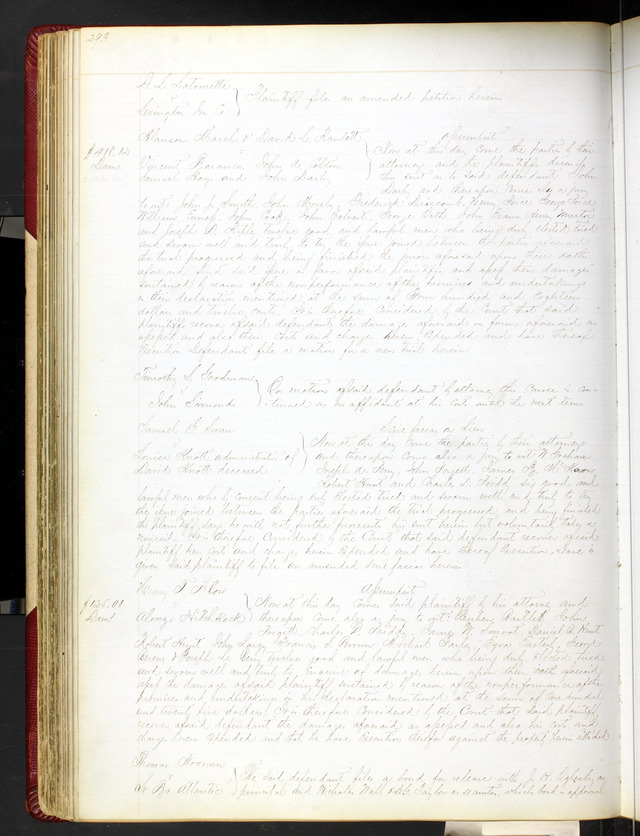 293
D L Latourette
vs
Plaintiff files an amended petition herein
Lexington Ins Co
Alanson Marsh & David L
Assumpsit
$418.12
Dam
vs
Now at this day come the parties by their
Vincent John
attorneys and the plaintiffs dismiss
Samuel and John Darby
their suit as to said defendant John
Darby and thereupon come also a jury
to wit John J. Smyth John Frederick Henry George
William John Cook, John George John Evans
and Joseph D. twelve good and lawful men who being duly elected tried
and sworn well and truly to try the issue joined between the parties aforesaid
the trial progressed and being finished the jurors aforesaid upon their oaths
aforesaid find said issue in favor of said plaintiffs and assess their damages
sustained by reason of the nonperformance of the promises and undertakings
in their declaration mentioned at the sum of Four hundred and Eighteen
dollars and twelve cents. It is therefore Considered by the Court that said
plaintiffs recover of said defendants the damages aforesaid in form aforesaid as
assessed and also their costs and charges herein expended and have thereof
Execution Defendants file a motion for a new trial herein
Timothy S. Goodman
vs
On motion of said defendant by attorney this cause is con-
John Simonds
tinued on an affidavit at his cost until the next term
Samuel Swan
Scire facias on lien
vs
Now at this day come the parties by their attorneys
Louisa Knott administratrix of
and thereupon come also a jury to wit W Graham
David Knott deceased
Joseph John James
Robert Hunt and Charles D. six good and
lawful men who by consent being duly elected tried and sworn well and truly to try
the issue joined between the parties aforesaid the trial progressed and being finished
the plaintiff says he will not further prosecute his suit herein but voluntarily takes a
nonsuit. It is therefore Considered by the Court that said defendant recover of said
plaintiff her costs and charges herein expended and have thereof Execution. Leave is
given said plaintiff to file an amended scire facias herein
Henry T. Blow
Assumpsit
$125.00
Dam
vs
Now at this day comes said plaintiff by his attorney and
Alonzo Hitchcock
thereupon come also a jury to wit Reuben Bartlett John
Charles D. James W. Smoot, Samuel A. Hunt
Robert Hunt, John Francis S. Brown Michael Ezra George
& Joseph twelve good and lawful men who being duly elected tried
and sworn well and truly to enquire of damages herein upon their oath aforesaid
assess the damages of said plaintiff sustained by reason of the nonperformance of the
promises and undertakings in said declaration mentioned at the sum of One hundred
and twenty five dollars. It is therefore Considered by the Court that said plaintiff
recover of said defendant the damages aforesaid as assessed and also his costs and
charges herein expended and that he have Execution therefor against the property herein attached
Thomas
vs
The said defendant files a bond for release with J. H.
St Br Atlantic
principal and Nicholas Wall & Taylor as sureties which bond is approved